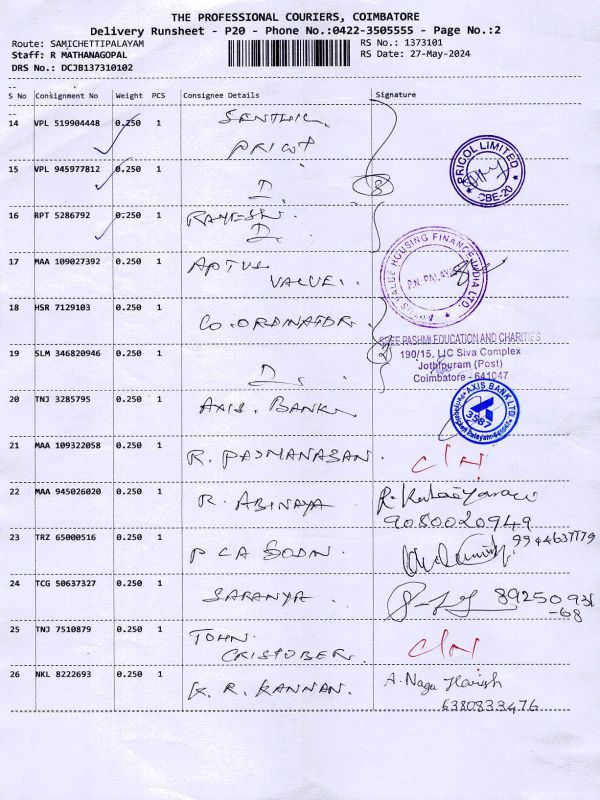 THE PROFESSIONAL COURIERS, COIMBATORE
Delivery Runsheet - P20 - Phone No.:0422-3505555 - Page No.:2
Route: SAMICHETTIPALAYAM
Staff: R MATHANAGOPAL
DRS No.: DCJB137310102
RS No.: 1373101
RS Date: 27-May-2024
S No Consignment No Weight PCS Consignee Details Signature
14 VPL 519904448 0.250 1 SENTHIL
PRICOL
15 VPL 945977812 0.250 1 D
PRICOL LIMITED
CBE-20
16 RPT 5286792 0.250 1 RAJESH.
D.
17 MAA 109027392 0.250 1 APTUS
VALUE.
VALUE HOUSING FINANCE INDIA LTD.
P.N. PALAYAM
18 HSR 7129103 0.250 1 CO.ORDINATOR.
19 SLM 346820946 0.250 1 D.
SREE PASHMI EDUCATION AND CHARITIES
190/15, LIC Siva Complex
Jothipuram (Post)
Coimbatore - 641047
20 TNJ 3285795 0.250 1 AXIS. BANK
AXIS BANK LTD
3587
21 MAA 109322058 0.250 1 R. PADMANABAN.
22 MAA 945026020 0.250 1 R. ABINAYA
9080020949
23 TRZ 65000516 0.250 1
9944637779
24 TCG 50637327 0.250 1 SARANYA. 89250931
-68
25 TNJ 7510879 0.250 1 JOHN.
CRISTOBER.
26 NKL 8222693 0.250 1 K. R. KANNAN. A. Nagu Harish
6380833476